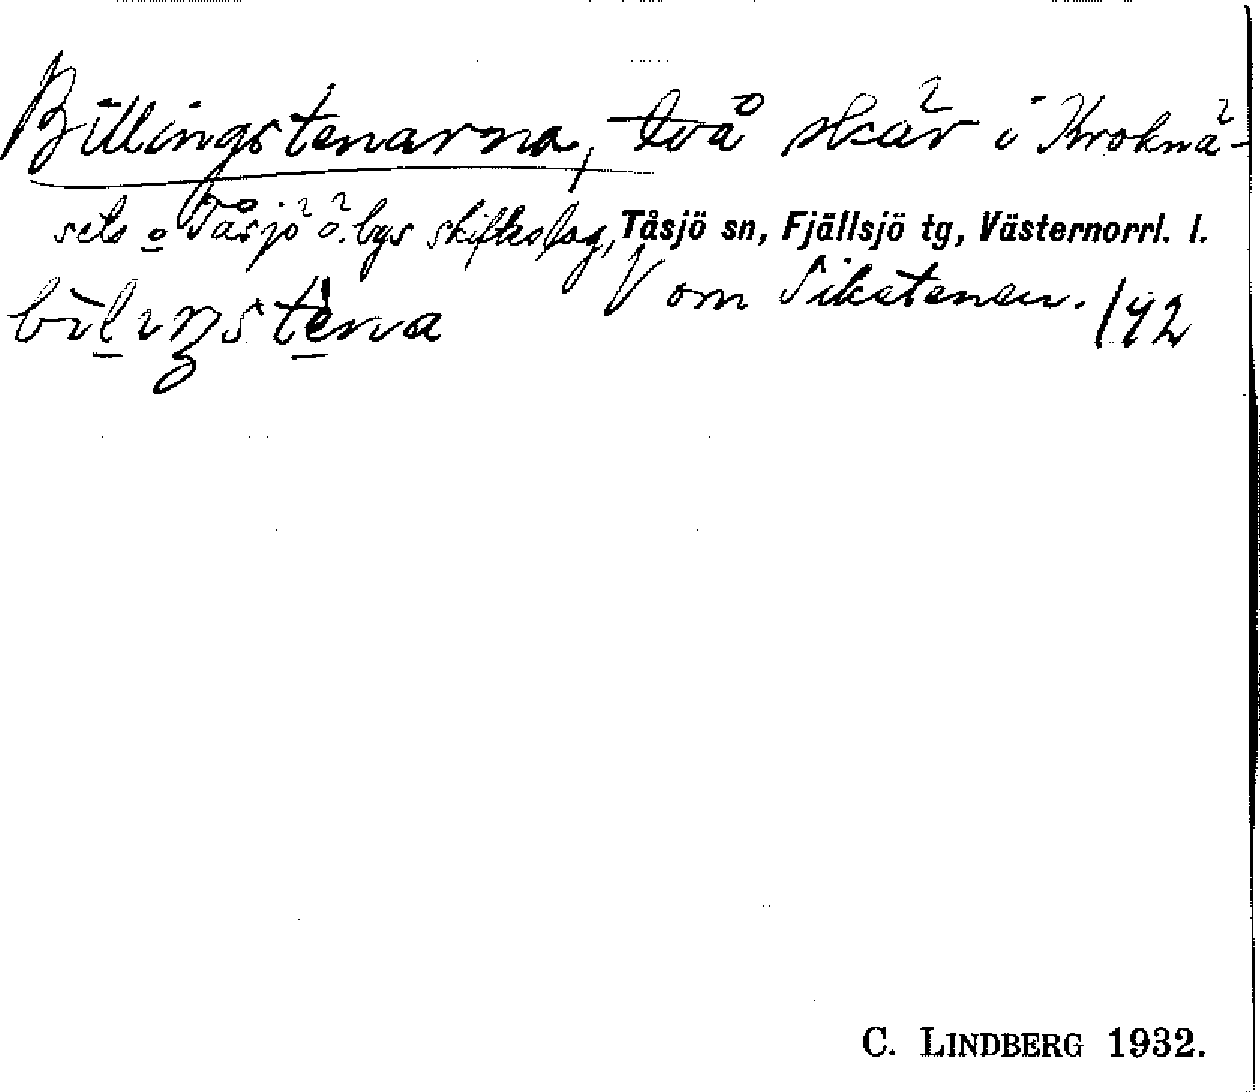 Billingstenarna, två skär i Kroknä-
sets o Tåsjö ö. bys skifteslag, Tåsjö sn, Fjällsjö tg, Västernorrl. l.
V om Sikstenen. 142
C. LINDBERG 1932.